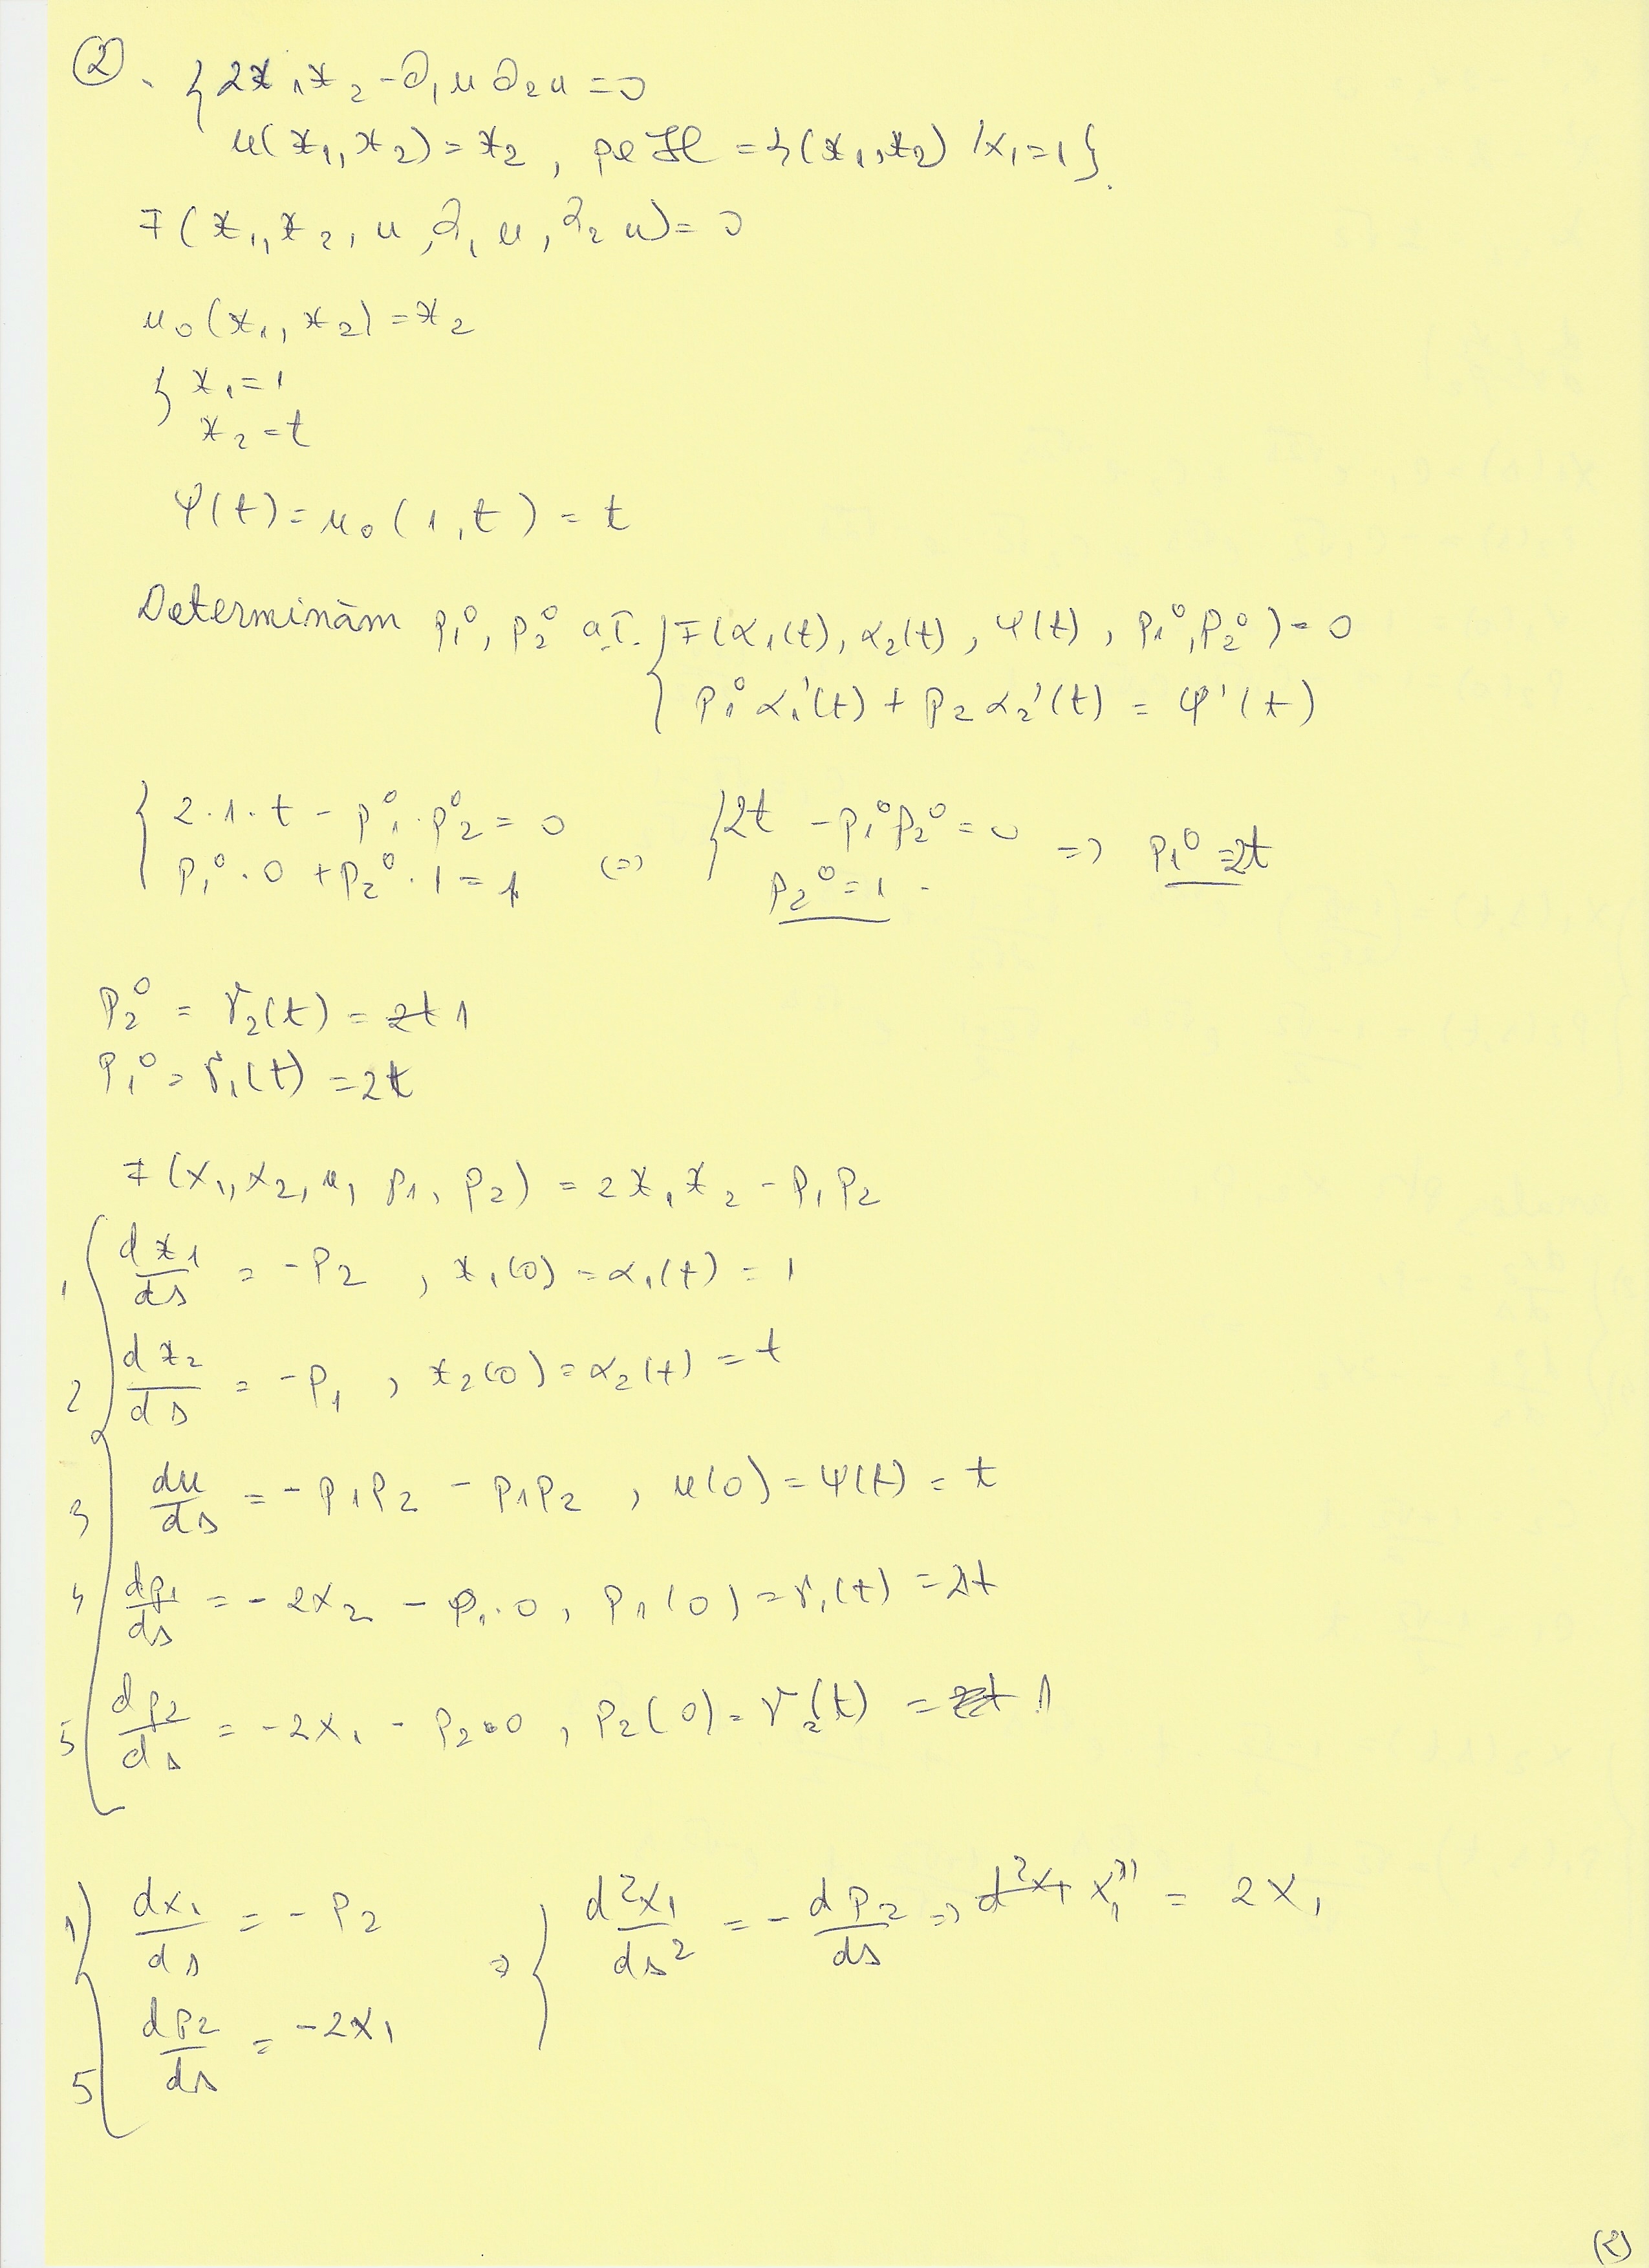 ② . { 2x₁x₂ - ∂₁u ∂₂u = 0
u(x₁, x₂) = x₂ , pe H = {(x₁, x₂) / x₁ = 1}.
F(x₁, x₂, u, ∂₁u, ∂₂u) = 0
u₀(x₁, x₂) = x₂
{ x₁ = 1
x₂ = t
φ(t) = u₀(1, t) = t
Determinăm p₁⁰, p₂⁰ a.î. { F(α₁(t), α₂(t), φ(t), p₁⁰, p₂⁰) = 0
p₁⁰ α₁'(t) + p₂ α₂'(t) = φ'(t)
{ 2·1·t - p₁⁰·p₂⁰ = 0 (=) { 2t - p₁⁰p₂⁰ = 0 => p₁⁰ = 2t
p₁⁰·0 + p₂⁰·1 = 1 p₂⁰ = 1.
p₂⁰ = γ₂(t) = 2t 1
p₁⁰ = γ₁(t) = 2t
F(x₁, x₂, u, p₁, p₂) = 2x₁x₂ - p₁p₂
1 { dx₁/ds = -p₂ , x₁(0) = α₁(t) = 1
2 dx₂/ds = -p₁ , x₂(0) = α₂(t) = t
3 du/ds = -p₁p₂ - p₁p₂ , u(0) = φ(t) = t
4 dp₁/ds = -2x₂ - p₁·0 , p₁(0) = γ₁(t) = 2t
5 dp₂/ds = -2x₁ - p₂·0 , p₂(0) = γ₂(t) = 2t 1
1) { dx₁/ds = -p₂ => { d²x₁/ds² = - dp₂/ds => d²x₁ x₁'' = 2x₁
5 dp₂/ds = -2x₁
(2)